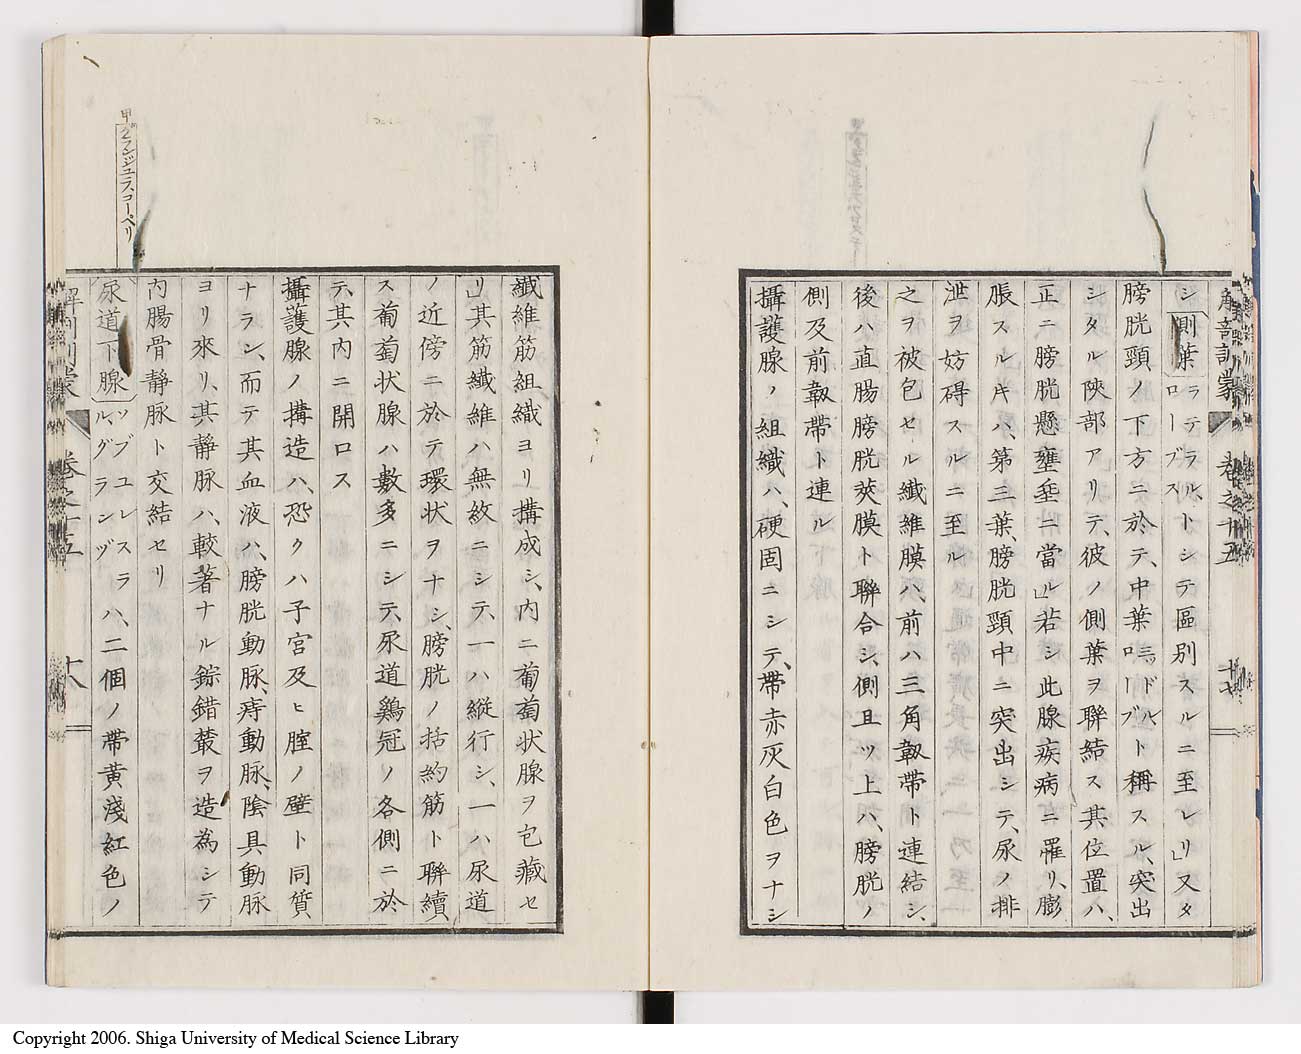 解剖訓蒙 卷之十五 十七
シ側葉ラテラル、ロープストシテ區別スルニ至レリ」又タ
膀胱頸ノ下方ニ於テ、中葉ミッドル、ローブト稱スル、突出
シタル陜部アリテ、彼ノ側葉ヲ聯結ス其位置ハ、
正ニ膀胱懸壅垂ニ當ル」若シ此腺疾病ニ罹リ、膨
脹スルキハ、第三葉、膀胱頸中ニ突出シテ、尿ノ排
泄ヲ妨碍スルニ至ル
之ヲ被包セル纎維膜ハ、前ハ三角韌帶ト連結シ、
後ハ直腸膀胱莢膜ト聯合シ、側且ツ上ハ、膀胱ノ
側及前韌帶ト連ル
攝護腺ノ組織ハ、硬固ニシテ、帶赤灰白色ヲナシ
纎維筋組織ヨリ搆成シ、内ニ葡萄状腺ヲ包藏セ
リ」其筋纎維ハ無紋ニシテ、一ハ縱行シ、一ハ尿道
ノ近傍ニ於テ環状ヲナシ、膀胱ノ括約筋ト聯續
ス葡萄状腺ハ數多ニシテ、尿道鷄冠ノ各側ニ於
テ、其内ニ開口ス
攝護腺ノ搆造ハ、恐クハ子宮及ヒ腟ノ壁ト同質
ナラン、而テ其血液ハ、膀胱動脉、痔動脉、陰具動脉
ヨリ來リ、其靜脉ハ、較著ナル錝錯叢ヲ造為シテ
内腸骨靜脉ト交結セリ
甲 グランジュラスコーペリ
尿道下腺ソブユレスラル、グランヅハ、二個ノ帶黄淺紅色ノ
解剖訓蒙 卷之十五 十八
Copyright 2006. Shiga University of Medical Science Library